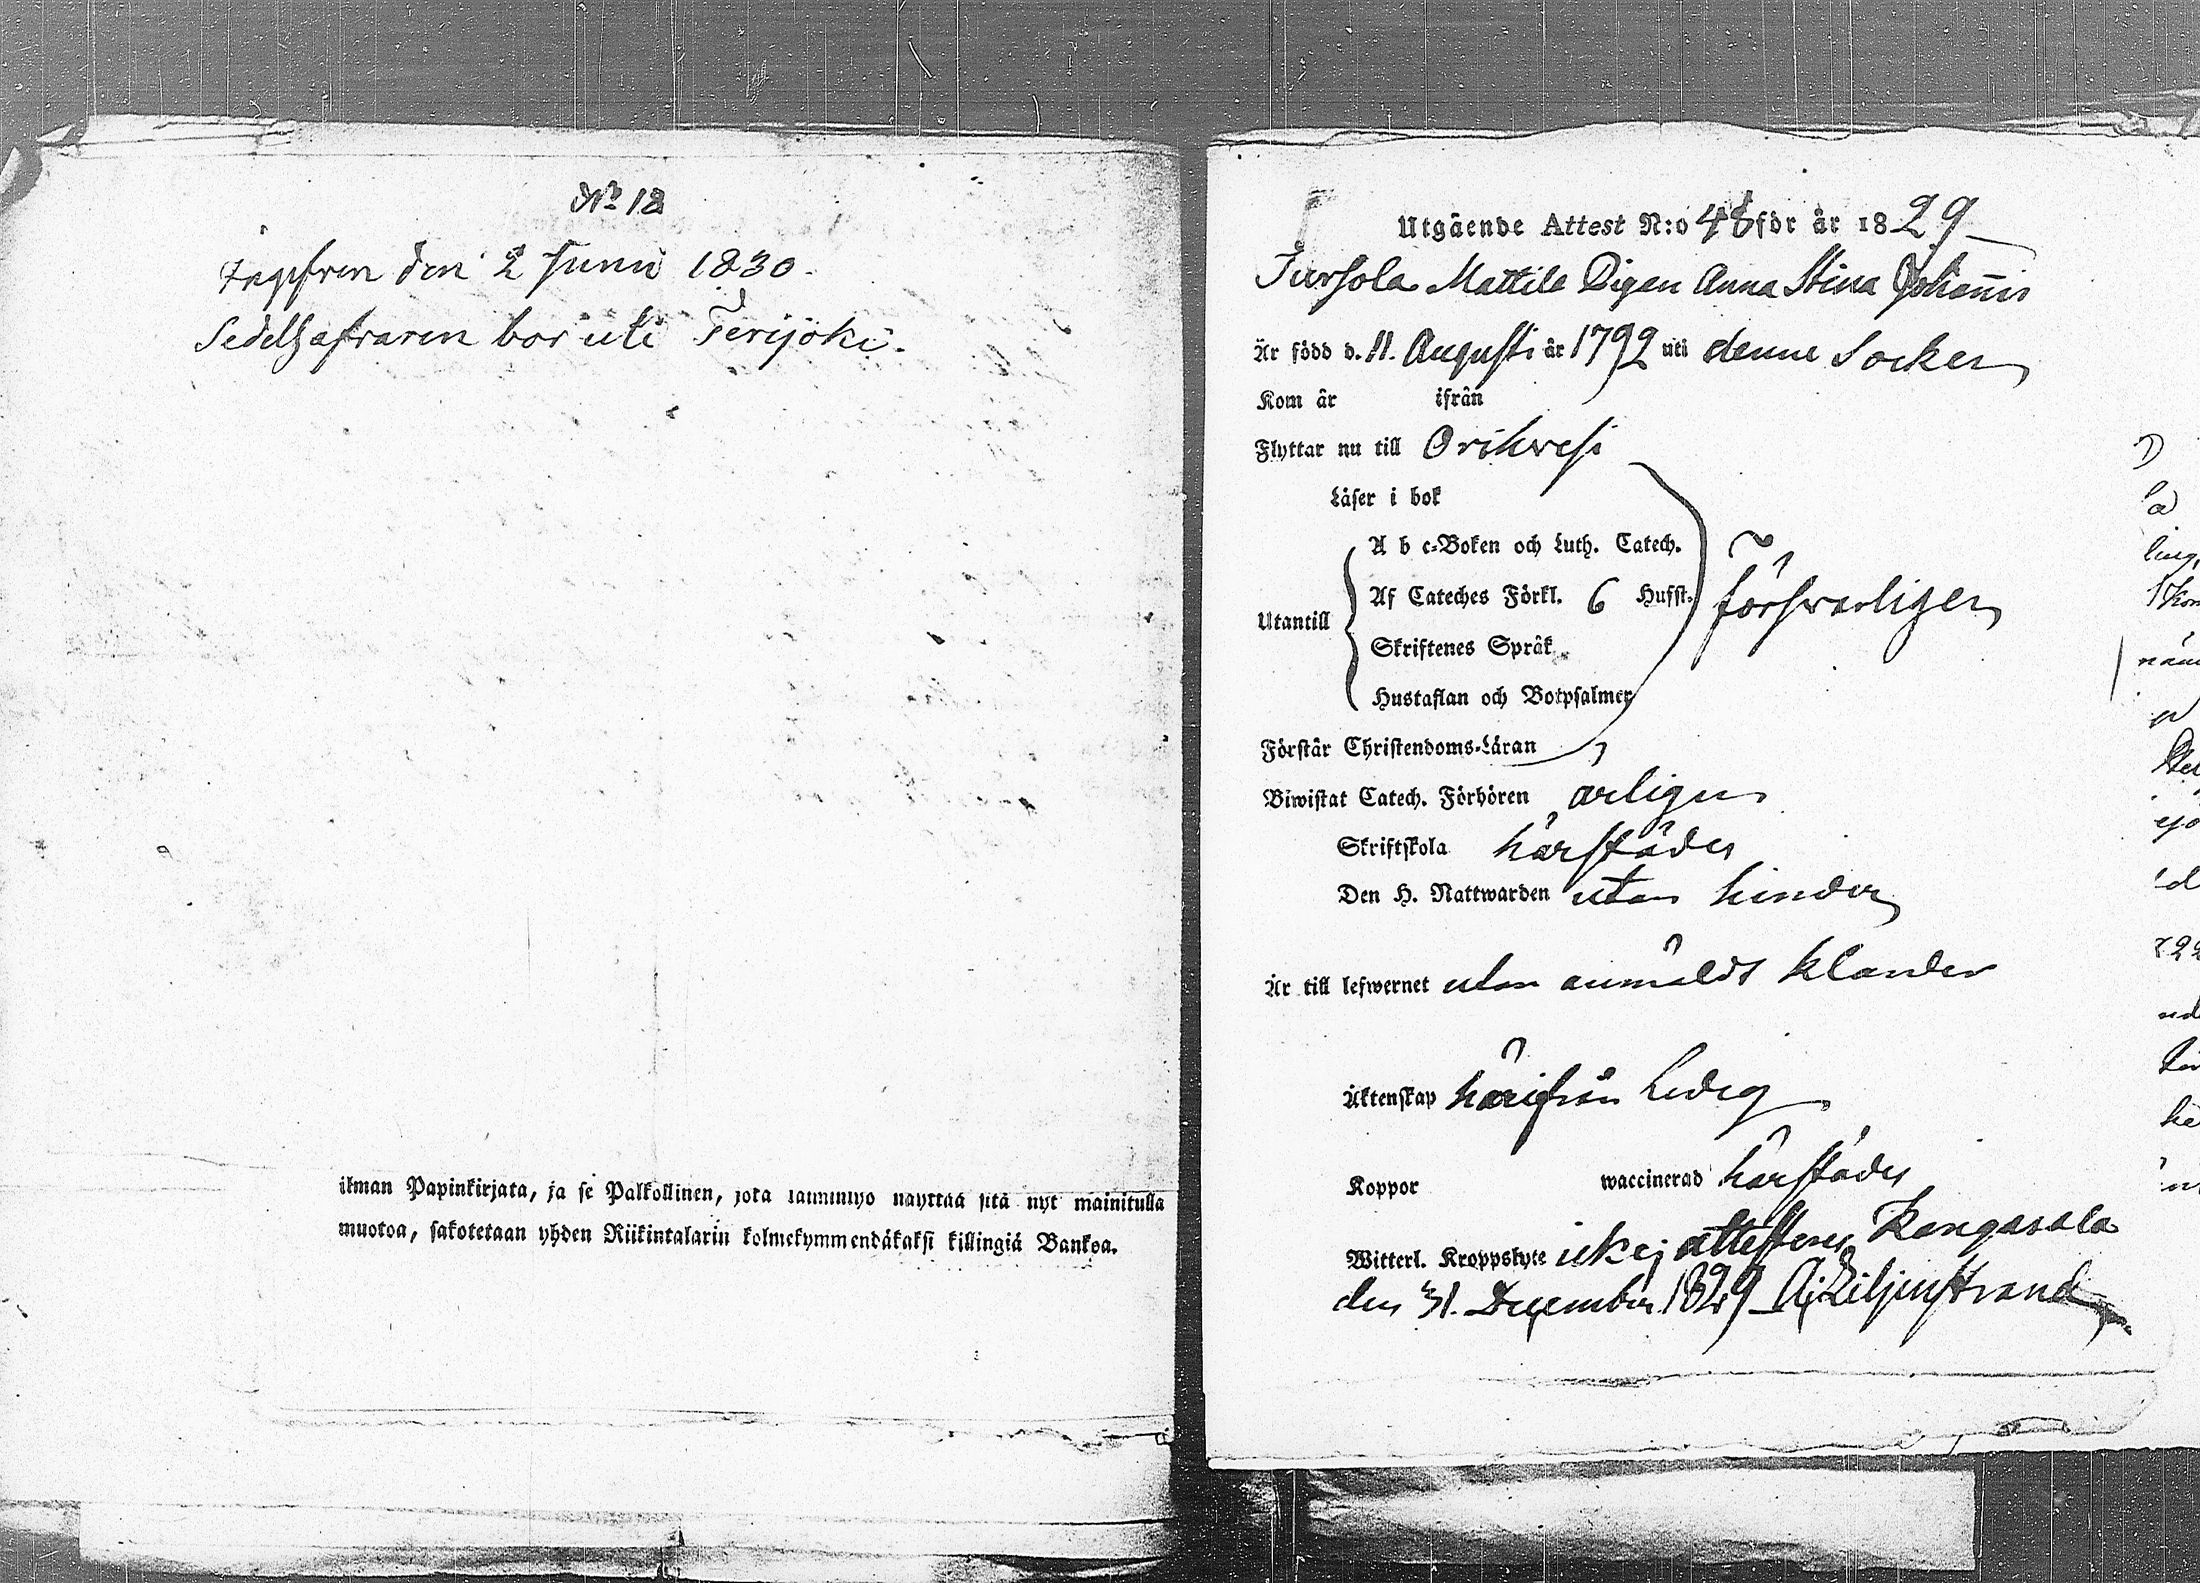 No 18
den 2 Junii 1830.
bor uti Terijoki.
ilman Papinkirjata, ja se Palkollinen, joka nayttää sitä nyt mainitulla
muotoa, sakotetaan yhden Riikintalarin kolmekymmendäkaksi killingiä Bankoa.
Utgående Attest N:o 48 för år 1829
Sursola Mattila Pigan Anna Stina Johannis
Är född d. 11. Augusti år 1792 uti denne Socken
Kom år ifrån
Flyttar nu till Orihwesi
Läser i bok
A b c-Boken och Luth. Catech.
Utantill Af Cateches Förkl. 6 Hufst. försvarligen
Skriftenes Språk
Hustaflan och Botpsalmer
Förstår Christendoms-Läran
Biwistat Catech. Förhören årligen
Skriftskola härstädes
Den H. Nattwarden utan hinder
Är till lefwernet utan anmäldt klander
Äktenskap härifrån Ledig
Koppor waccinerad härstädes
Witterl. Kroppslyte ej attesteras Kangasala
den 31. December 1829 Liljenstrand